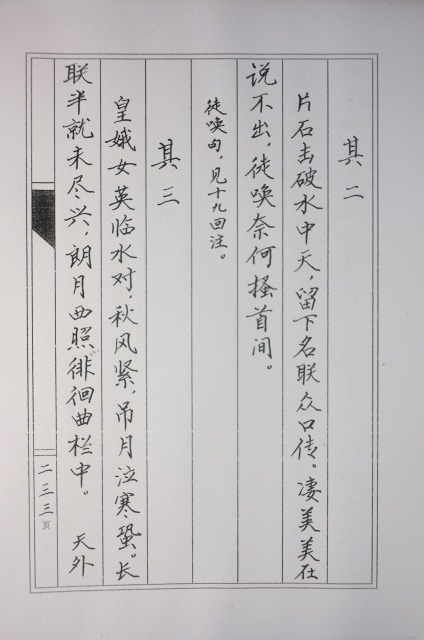 其二
片石击破水中天，留下名联众口传。凄美美在
说不出，徒唤奈何搔首间。
徒唤句，见十九回注。
其三
皇娥女英临水对，秋风紧，吊月泣寒蛩。长
联半就未尽兴，朗月西照徘徊曲栏中。 天外
二三三页